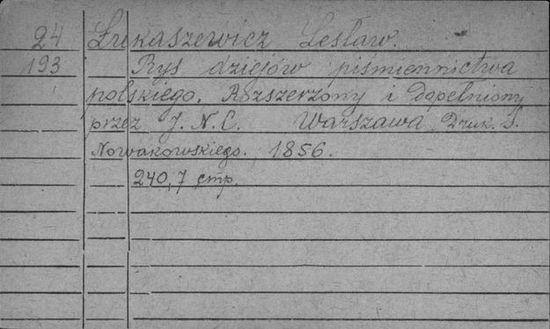 24 Łukaszewicz Lesław.
193 Rys dziejów piśmiennictwa
polskiego. Rozszerzony i dopełniony
przez J. N. C. Warszawa, Druk. J.
Nowakowskiego., 1856.
240,7 cmp.